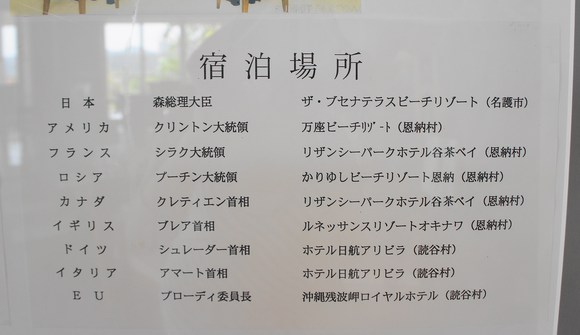 宿泊場所
日本 森総理大臣 ザ・ブセナテラスビーチリゾート（名護市）
アメリカ クリントン大統領 万座ビーチﾘｿﾞｰﾄ（恩納村）
フランス シラク大統領 リザンシーパークホテル谷茶ベイ（恩納村）
ロシア プーチン大統領 かりゆしビーチリゾート恩納（恩納村）
カナダ クレティエン首相 リザンシーパークホテル谷茶ベイ（恩納村）
イギリス ブレア首相 ルネッサンスリゾートオキナワ（恩納村）
ドイツ シュレーダー首相 ホテル日航アリビラ（読谷村）
イタリア アマート首相 ホテル日航アリビラ（読谷村）
ＥＵ プローディ委員長 沖縄残波岬ロイヤルホテル（読谷村）